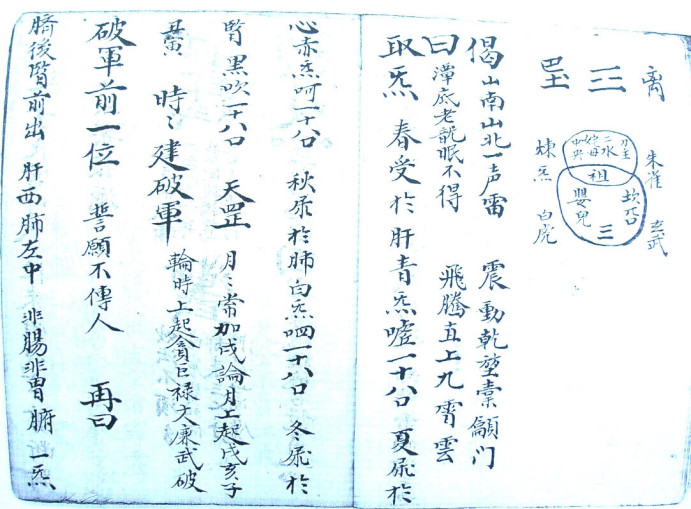 三
朱雀 玄武
祖
嬰兒
三
煉炁 白虎
偈 山南山北一声雷 震動乾堃橐籥门
曰 潭底老龍眠不得 飛騰直上九霄雲
取炁 春受於肝青炁噓一十八口 夏於
心赤炁呵一十八口 秋於肺白炁呬一十八口 冬於
腎黑吹一十八口 天罡 月〻常加戌 論月上起戌亥子
時〻建破軍 輪時上起貪巨禄文廉武破
破軍前一位 誓願不傳人 再曰
臍後腎前出 肝西肺左中 非腸非胃腑 一炁